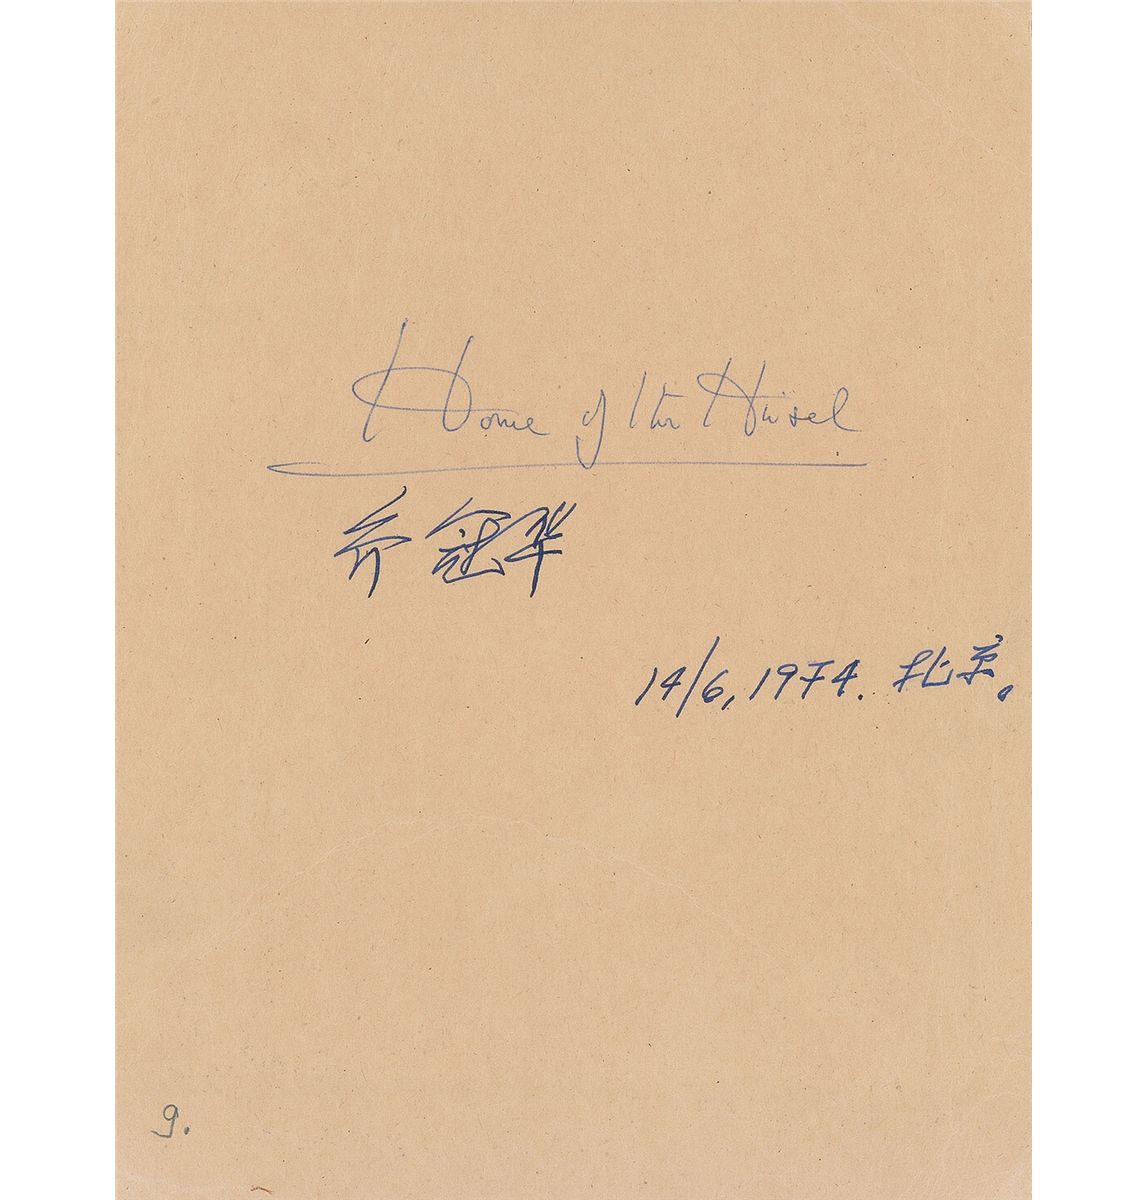 Home of the
乔冠华
14/6, 1974. 北京。
9.